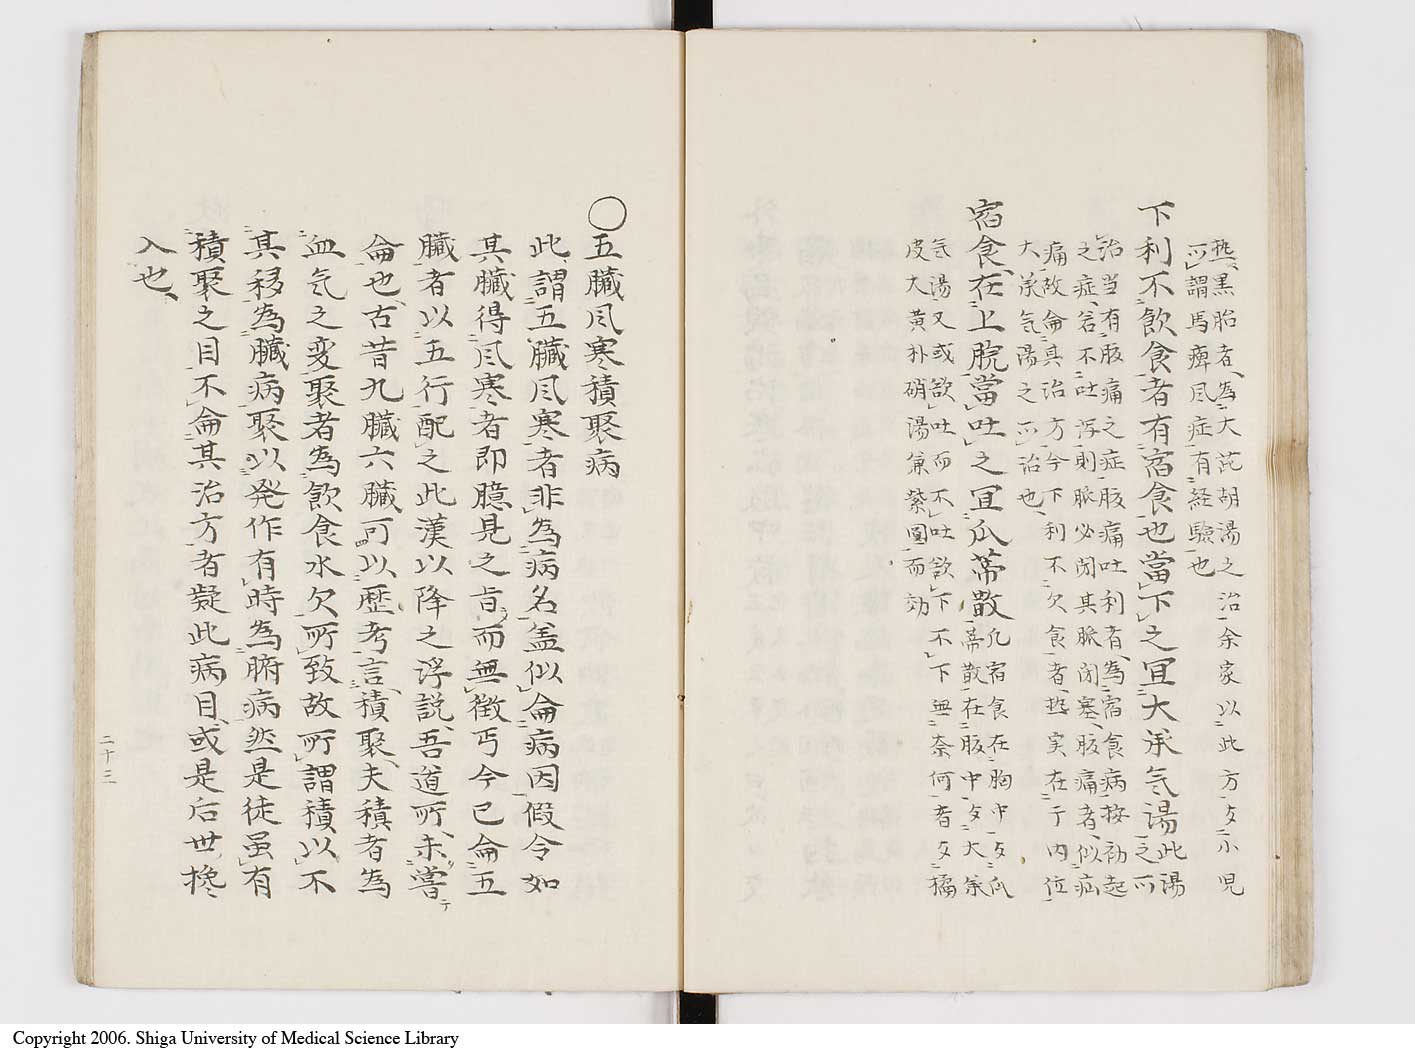 熱、黒胎者、為大茈胡湯之治、余家以此方攻小児
所謂馬痺風症有経験也
下利不飲食者有宿食也當下之宜大承气湯此湯之所
治当有腹痛之症腹痛吐利者、為宿食病按初起
之症、若不吐浮則脈必閉其脈閉塞、腹痛者、似疝
痛故侖其治方今下利不欠食者、熱実在于内位
大承气湯之所治也、
宿食、在上脘當吐之宜瓜蒂散凡宿食在胸中攻瓜
蒂散在腹中攻大承
气湯又或欲吐而不吐欲下不下無奈何者攻橘
皮大黄朴硝湯兼紫圓而効
〇五臓风寒積聚病
此謂五臓风寒者非為病名盖似侖病因假令如
其臓得风寒者即臆見之㫖而無徴丐今已侖五
臓者以五行配之此漢以降之浮説、吾道所、未嘗
侖也、古昔九臓六臓可以歴考言、積聚、夫積者為
血气之変聚者為飲食水欠所致故所謂積以不
其移為臓病聚以発作有時為腑病然是徒虽有
積聚之目不侖其治方者疑此病目、或是后世攙
入也、
二十三
Copyright 2006. Shiga University of Medical Science Library